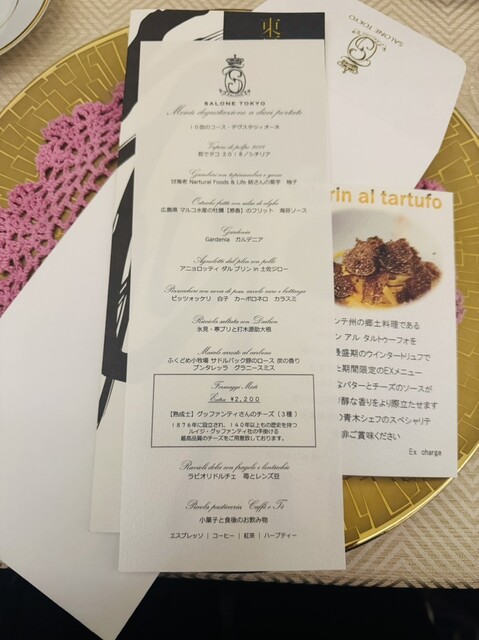 東
SALONE TOKYO
SALONE TOKYO
Menù degustazione a dieci portate
10皿のコース・デグスタツィオーネ
Vapore di polpo 2018
町でタコ 2018/シチリア
Gamberi con topinambur e yuzu
甘海老 Nartural Foods & Life 結さんの菊芋 柚子
Ostriche fritte con salsa di alghe
広島県 マルコ水産の牡蠣【熟香】のフリット 海苔ソース
Gardenia
Gardenia ガルデニア
Agnolotti dal plin con pollo
アニョロッティ ダル プリン in 土佐ジロー
Pizzoccheri con uova di pesce, cavolo nero e bottarga
ピッツォッケリ 白子 カーボロネロ カラスミ
Ricciola saltata con Daikon
氷見・寒ブリと打木源助大根
Maiale arrosto al carbone
ふくどめ小牧場 サドルバック豚のロース 炭の香り
プンタレッラ グラニースミス
Formaggi Misti
Extra ¥2,200
【熟成士】グッファンティさんのチーズ(3種)
1876年に設立され、140年以上もの歴史を持つ
ルイジ・グッファンティ社の手掛ける
最高品質のチーズをご用意致しております。
Ravioli dolci con fragole e lenticchie
ラビオリドルチェ 苺とレンズ豆
Piccola pasticceria Caffè o Tè
小菓子と食後のお飲み物
エスプレッソ | コーヒー | 紅茶 | ハーブティー
rin al tartufo
ンテ州の郷土料理である
ン アル タルトゥーフォを
最盛期のウインタートリュフで
た期間限定のEXメニュー
なバターとチーズのソースが
芳醇な香りをより際立たせます
の青木シェフのスペシャリテ
非ご賞味ください
Ex charge